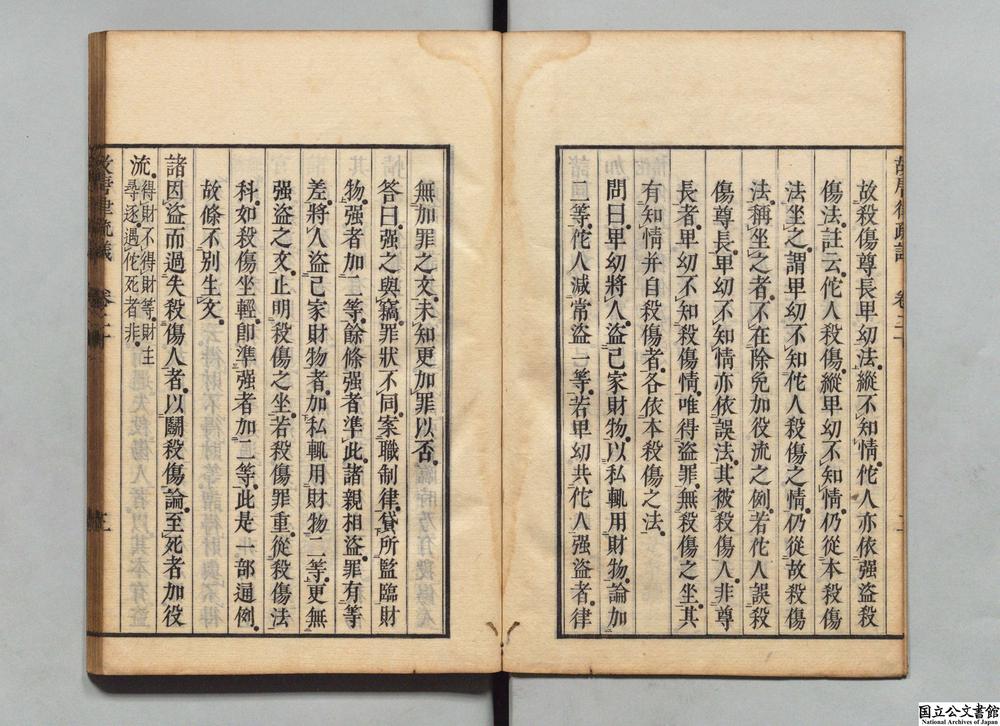 故殺傷尊長卑幼法。縱不知情。佗人亦依强盜殺
傷法。註云。佗人殺傷。縱卑幼不知情。仍從本殺傷
法坐之。謂卑幼不知佗人殺傷之情。仍從故殺傷
法。稱坐之者。不在除免加役流之例。若佗人誤殺
傷尊長。卑幼不知情。亦依誤法。其被殺傷人。非尊
長者。卑幼不知殺傷情。唯得盜罪。無殺傷之坐。其
有知情并自殺傷者。各依本殺傷之法。
問曰。卑幼將人。盜己家財物。以私輒用財物論加
二等。佗人減常盜一等。若卑幼共佗人强盜者。律
無加罪之文。未知更加罪以否。
答曰。强之與竊。罪狀不同。案職制律。貸所監臨財
物。强者加二等。餘條强者準此。諸親相盜。罪有等
差。將人盜己家財物者。加私輒用財物二等。更無
强盜之文。止明殺傷之坐。若殺傷罪重。從殺傷法
科。如殺傷坐輕。卽準强者加二等。此是一部通例。
故條不別生文。
諸因盜而過失殺傷人者。以鬭殺傷論。至死者加役
流。得財不得財等。財主
尋逐遇佗死者非。
故唐律疏議 卷二十
国立公文書館
National Archives of Japan